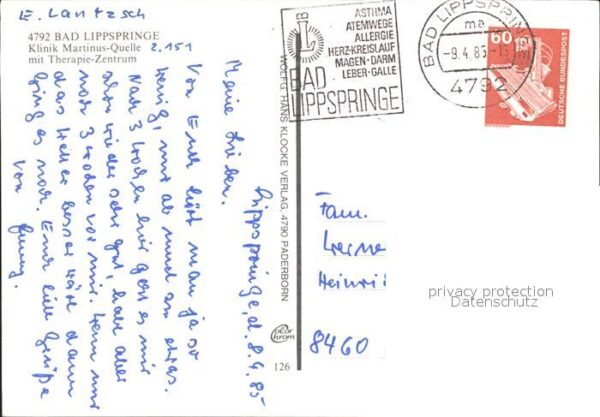 E. Lantzsch
2.151
4792 BAD LIPPSPRINGE
Klinik Martinus-Quelle
mit Therapie-Zentrum
Lippspringe, d. 8.4.85
Meine Lieben.
Von Euch hört man ja so
wenig, nur ab und an etwas.
Nach 3 Wochen hier geht es mir
schon wieder sehr gut, habe aber
noch 3 Wochen vor mir. Wenn nur
das Wetter besser wär dann
ging es noch. Euch viele Grüße
von
WOLFG. HANS KLOCKE VERLAG, 4790 PADERBORN
color
chrom
126
BAD
LIPPSPRINGE
ASTHMA
ATEMWEGE
ALLERGIE
HERZ·KREISLAUF
MAGEN·DARM
LEBER·GALLE
BAD LIPPSPRINGE
ma
-9.4.85-
4792
60
DEUTSCHE BUNDESPOST
Fam.
Werne
Heinri
8460
privacy protection
Datenschutz